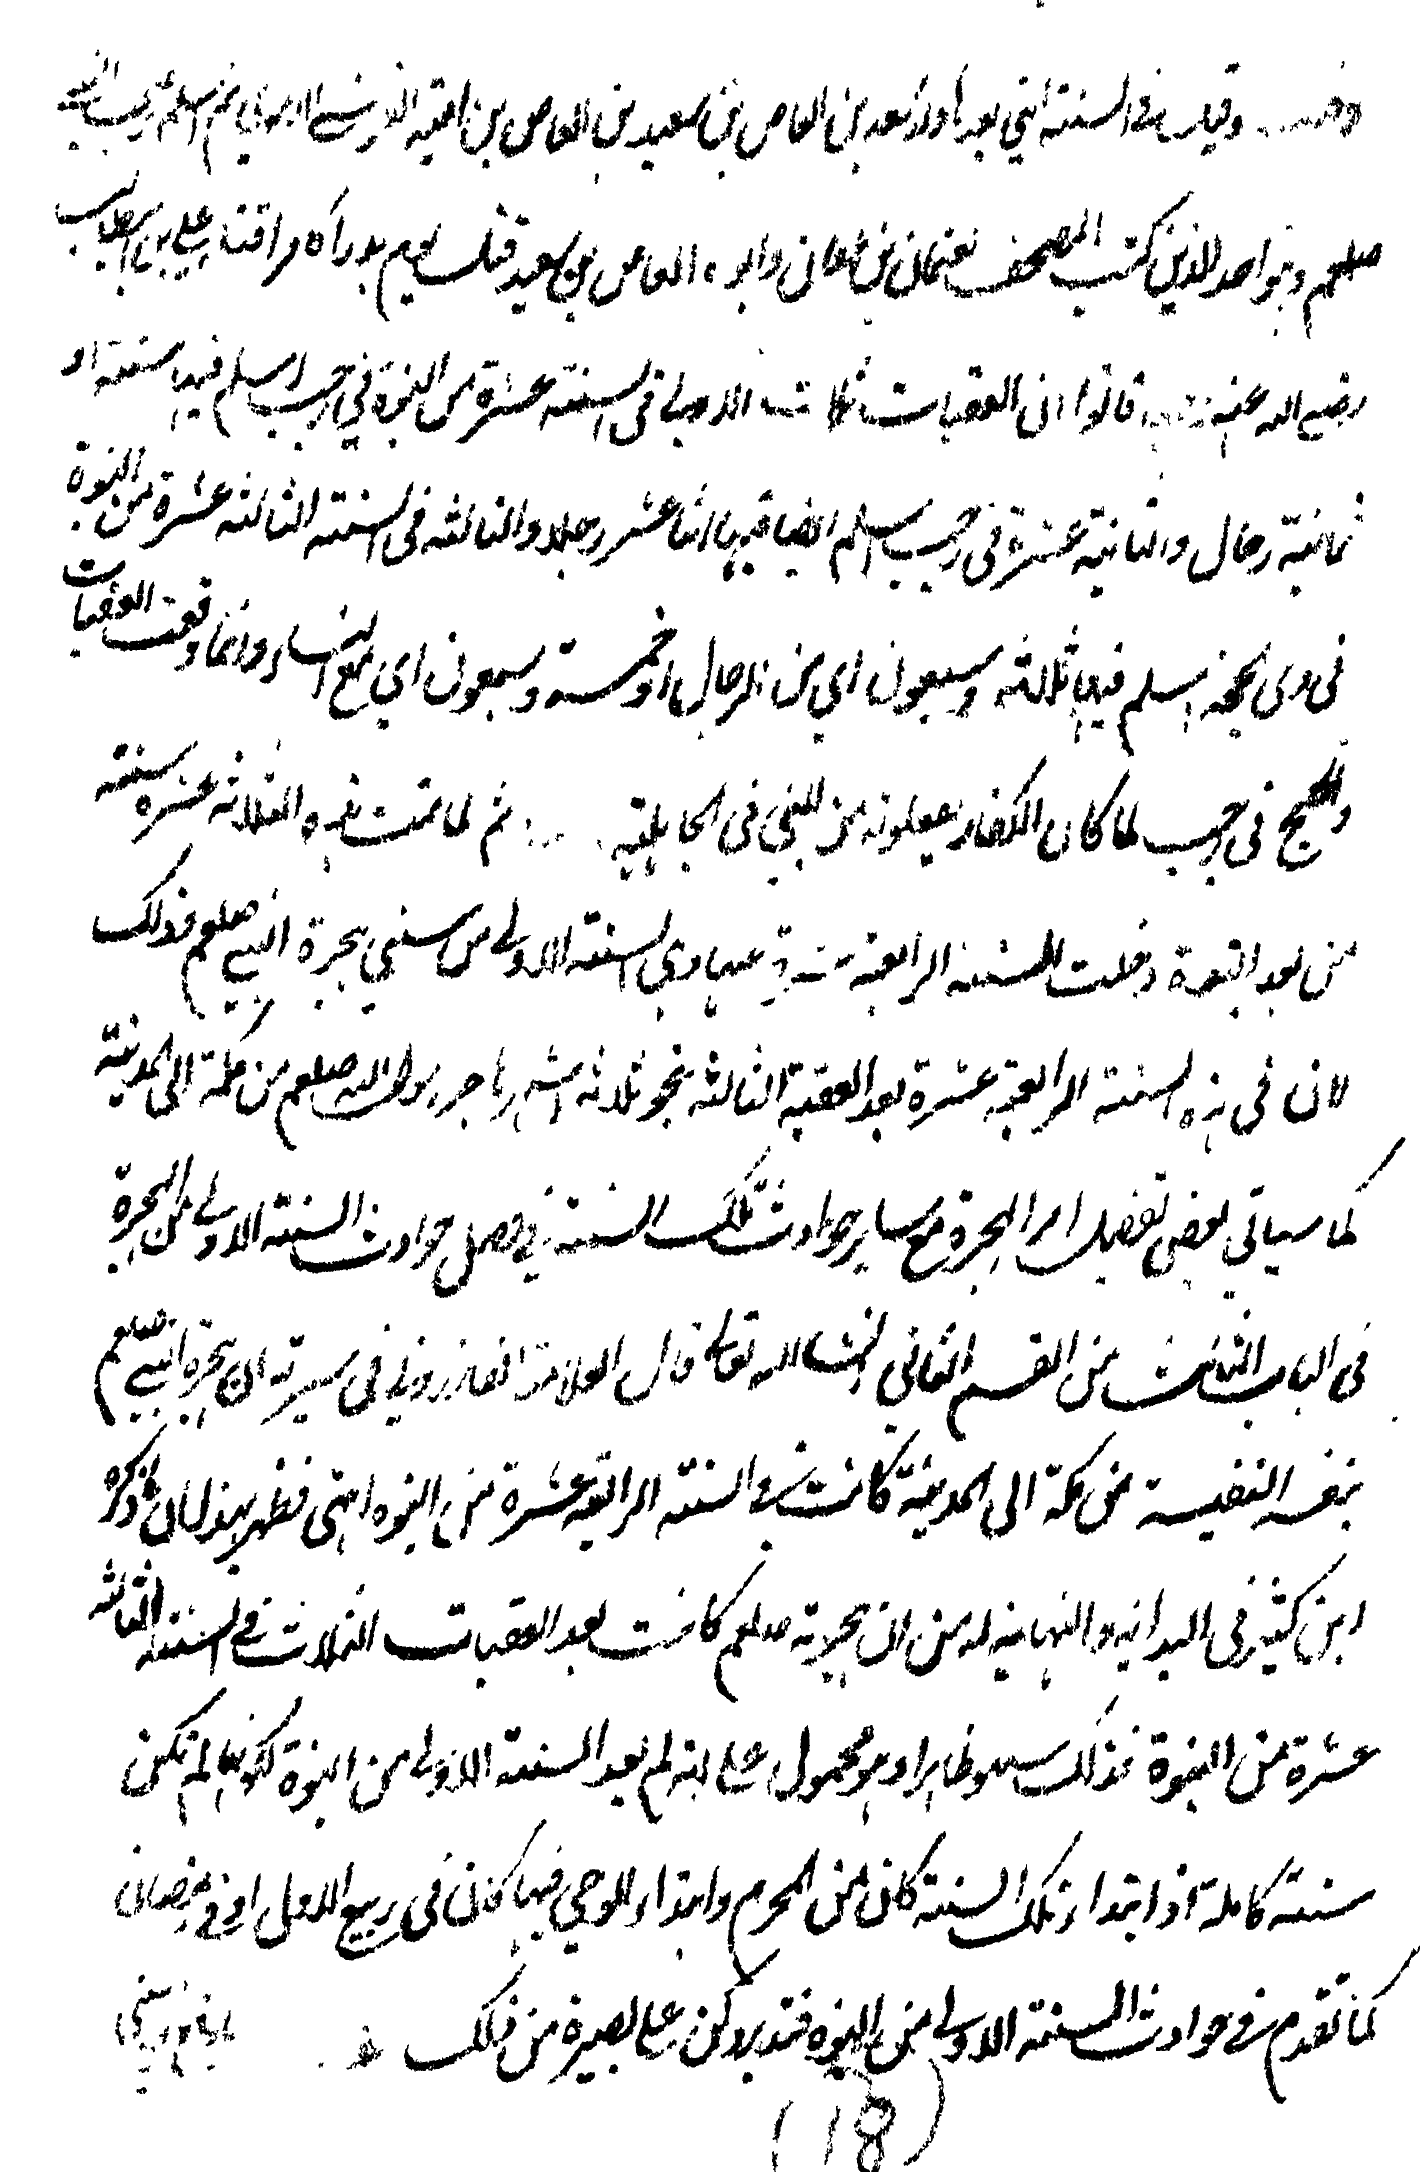 وقيل في السنة التي بعدها ولد سعد بن العاص بن سعيد بن العاص بن امية القرشي الاموي ثم اسلم
صلعم وهو احد الذين كتب المصحف لعثمان بن عفان وابوه العاص بن سعيد قتل يوم بدر كافرا قتله علي بن ابي طالب
رضي الله عنه قالوا ان العقبات ثلاث الاولى في السنة عشرة من النبوة في رجب اسلم فيها ستة او
ثمانية رجال والثانية عشرة في رجب اسلم ايضا فيها اثنا عشر رجلا والثالثة في السنة الثالثة عشرة من النبوة
في ذي الحجة اسلم فيها ثلاثة وسبعون اي من الرجال او خمسة وسبعون اي مع النساء وانما وقعت العقبات
والحج في رجب لما كان الكفار يفعلونه من النسي في الجاهلية ثم لما تمت هذه الثلاثة عشرة سنة
من بعد النبوة دخلت السنة الرابعة عشرة السنة الاولى من سني هجرة النبي صلعم فذلك
لان في هذه السنة الرابعة عشرة بعد العقبة الثالثة بنحو ثلاثة اشهر هاجر رسول الله صلعم من مكة الى المدينة
كما سياتي بعض تفصيل امر الهجرة مع ساير حوادث تلك السنة في فصل حوادث السنة الاولى من الهجرة
في الباب الثالث من القسم الثاني انشا الله تعالى قال العلامة الكازروني في سيرته ان هجرة النبي صلعم
بنفسه النفيسة من مكة الى المدينة كانت في السنة الرابعة عشرة من النبوة انتهى فظهر بهذا ان ما ذكره
ابن كثير في البداية والنهاية له من ان هجرته صلعم كانت بعد العقبات الثلاث في السنة الثالثة
عشرة من النبوة فذلك سهو ظاهر او هو محمول على انه لم يعد السنة الاولى من النبوة لكونها لم تكن
سنة كاملة اذ ابتداء تلك السنة كان من المحرم وابتداء الوحي فيها كان في ربيع الاول او في رمضان
كما تقدم في حوادث السنة الاولى من النبوة فتدبر وكن على بصيرة من ذلك
(18)